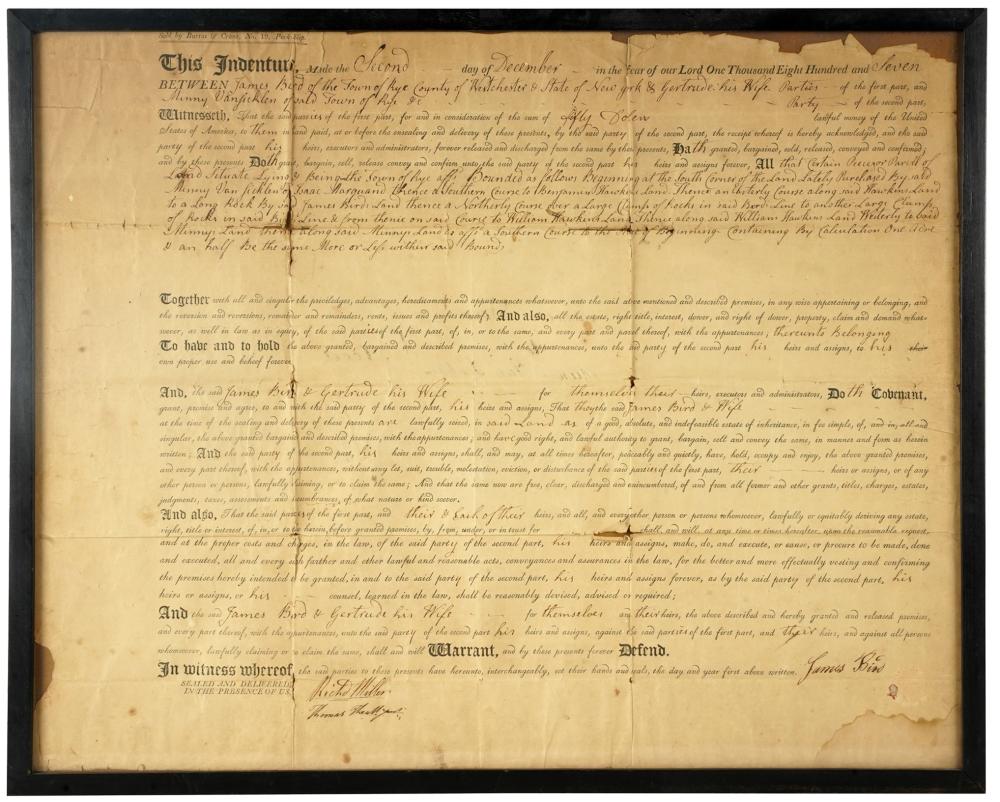 Sold by Burtus & Crane, No. 19, Peck-slip.
This Indenture, Made the Second day of December in the Year of our Lord One Thousand Eight Hundred and Seven
BETWEEN James Bird of the Town of Rye County of Westchester & State of New york & Gertrude his Wife Parties of the first part, and
Minny Vansicklen of said Town of Rye &c Party of the second part,
Witnesseth, That the said parties of the first part, for and in consideration of the sum of lawful money of the United
States of America, to them in hand paid, at or before the ensealing and delivery of these presents, by the said party of the second part, the receipt whereof is hereby acknowledged, and the said
party of the second part his heirs, executors and administrators, forever released and discharged from the same by these presents, Hath granted, bargained, sold, released, conveyed and confirmed;
and by these presents Doth grant, bargain, sell, release convey and confirm unto the said party of the second part his heirs and assigns forever, All that Certain Piece or Parsil of
Land Situate Lying & Being the Town of Rye aff. Bounded as follows Beginning at the South Corner of the Land Lately Purchased By said
Minny Van Sicklen of Isaac Marquand thence a Southern Course to Benjamin Hawkins Land Thence an Easterly Course along said Hawkins Land
to a Long Rock By said James Birds Land thence a Northerly Course over a Large Clump of Rocks in said Birds Line to another Large Clump
of Rocks in said Birds Line & from thence on said Course to William Hawkins Land Thence along said William Hawkins Land Westerly to said
Minnys Land thence along said Minnys Land as aff. a Southern Course to the Place of Beginning Containing By Calculation One Acre
& an half Be the same More or Less within said Bounds
Together with all and singular the priviledges, advantages, hereditaments and appurtenances whatsoever, unto the said above mentioned and described premises, in any wise appertaining or belonging, and
the reversion and reversions, remainder and remainders, rents, issues and profits thereof; And also, all the estate, right title, interest, dower, and right of dower, property, claim and demand what-
soever, as well in law as in equity, of the said parties of the first part, of, in, or to the same, and every part and parcel thereof, with the appurtenances; thereunto Belonging
To have and to hold the above granted, bargained and described premises, with the appurtenances, unto the said party of the second part his heirs and assigns, to his their
own proper use and behoof forever.
And, the said James Bird & Gertrude his Wife for themselves their heirs, executors and administrators, Doth Covenant,
grant, promise and agree, to and with the said party of the second part, his heirs and assigns, That they the said James Bird & Wife
at the time of the sealing and delivery of these presents are lawfully seized, in said Land as of a good, absolute, and indefeasible estate of inheritance, in fee simple, of, and in, all and
singular, the above granted bargained and described premises, with the appurtenances; and have good right, and lawful authority to grant, bargain, sell and convey the same, in manner and form as herein
written; And the said party of the second part, his heirs and assigns, shall, and may, at all times hereafter, peaceably and quietly, have, hold, occupy and enjoy, the above granted premises,
and every part thereof, with the appurtenances, without any let, suit, trouble, molestation, eviction, or disturbance of the said parties of the first part, their heirs or assigns, or of any
other person or persons, lawfully claiming, or to claim the same; And that the same now are free, clear, discharged and unincumbered, of and from all former and other grants, titles, charges, estates,
judgments, taxes, assessments and incumbrances, of what nature or kind soever.
And also, That the said parties of the first part, and their & each of their heirs, and all, and every other person or persons whomsoever, lawfully or equitably deriving any estate,
right, title or interest, of, in, or to the herein, before granted premises, by, from, under, or in trust for shall, and will, at any time or times hereafter, upon the reasonable request,
and at the proper costs and charges, in the law, of the said party of the second part, his heirs and assigns, make, do, and execute, or cause, or procure to be made, done
and executed, all and every such farther and other lawful and reasonable acts, conveyances and assurances in the law, for the better and more effectually vesting and confirming
the premises hereby intended to be granted, in and to the said party of the second part, his heirs and assigns forever, as by the said party of the second part, his
heirs or assigns, or his counsel, learned in the law, shall be reasonably devised, advised or required;
And the said James Bird & Gertrude his Wife for themselves their heirs, the above described and hereby granted and released premises,
and every part thereof, with the appurtenances, unto the said party of the second part his heirs and assigns, against the said parties of the first part, and their heirs, and against all persons
whomsoever, lawfully claiming or to claim the same, shall and will Warrant, and by these presents forever Defend.
In witness whereof, the said parties to these presents have hereunto, interchangeably, set their hands and seals, the day and year first above written. James Bird
SEALED AND DELIVERED,
IN THE PRESENCE OF US,
Richd Miller
Thomas